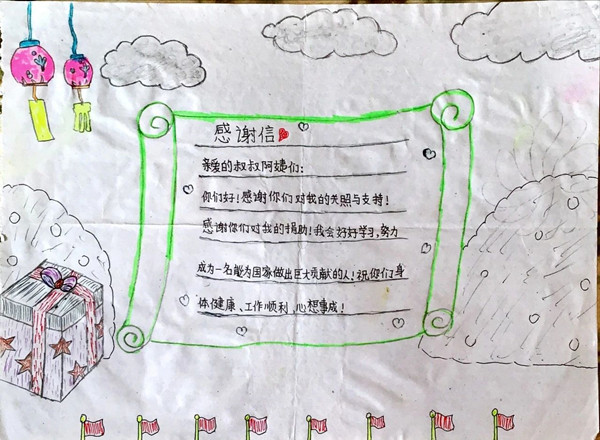 感谢信
亲爱的叔叔阿姨们:
你们好!感谢你们对我的关照与支持!
感谢你们对我的捐助!我会好好学习,努力
成为一名能为国家做出巨大贡献的人!祝你们身
体健康、工作顺利、心想事成!